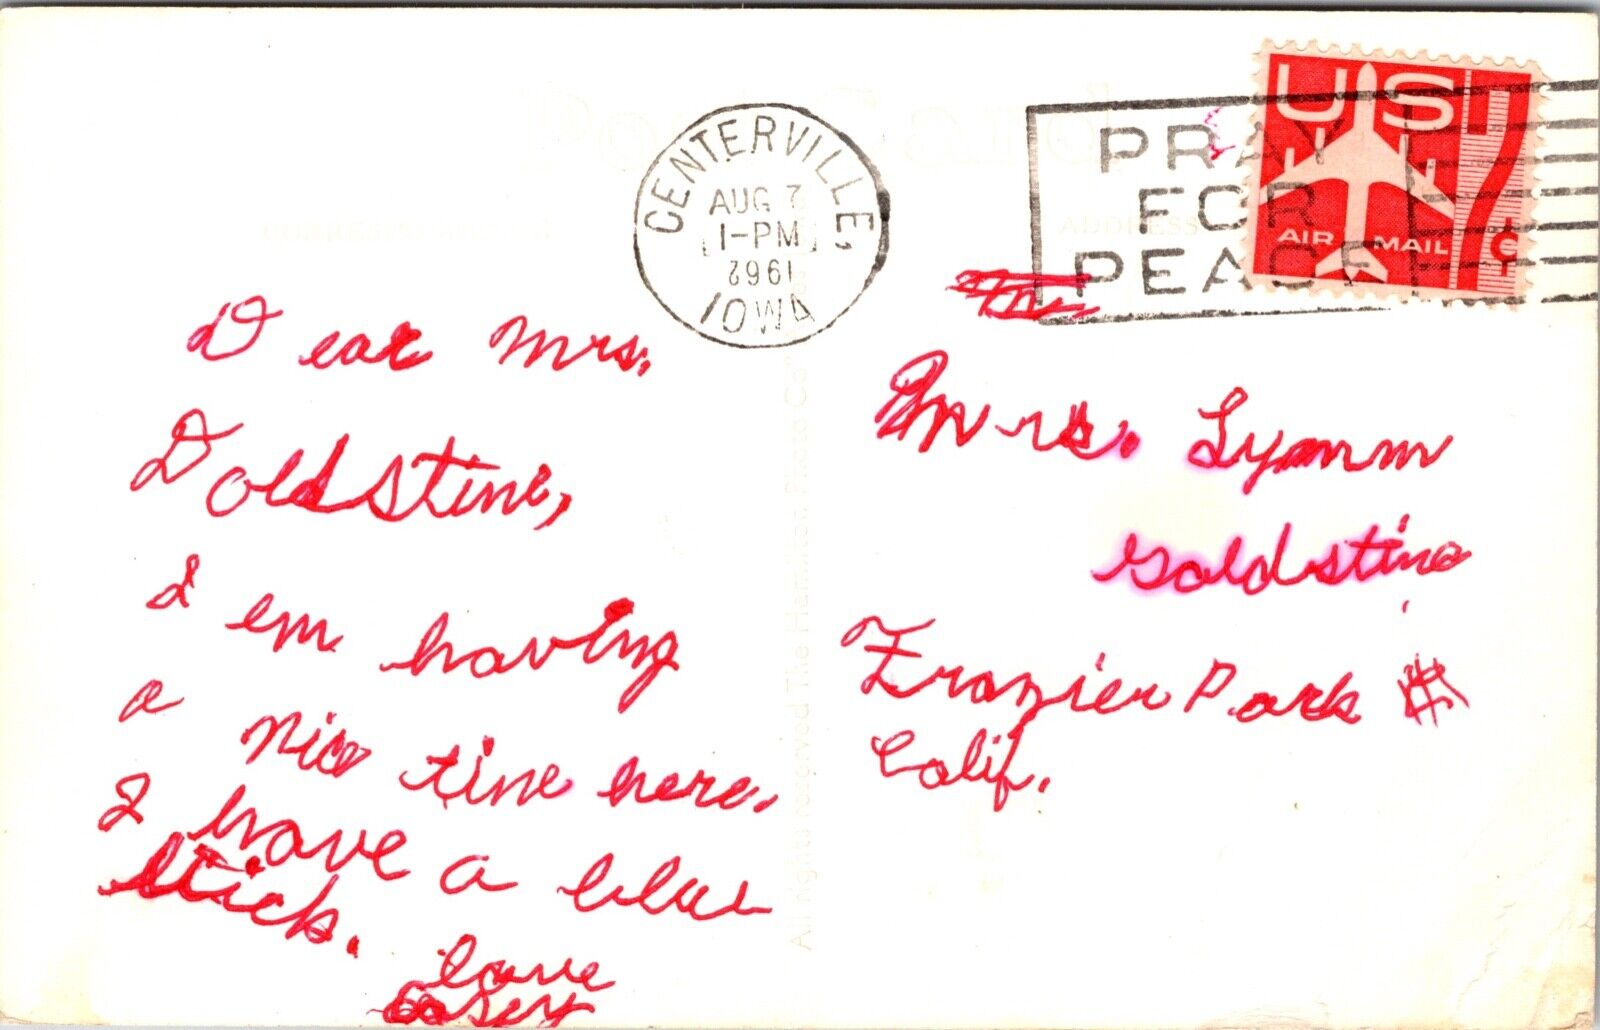 Post Card
CENTERVILLE,
AUG 7
1-PM
1962
IOWA
PRAY
FOR
PEACE
US
7¢
AIR MAIL
ADDRESS
Dear Mrs.
Doldstine,
I em having
a nice tine here.
I have a blue
stick.
love
Casey
Mrs. Lynnm
Goldstine
Frazier Park
Calif.
All rights reserved The Hamilton Photo Co